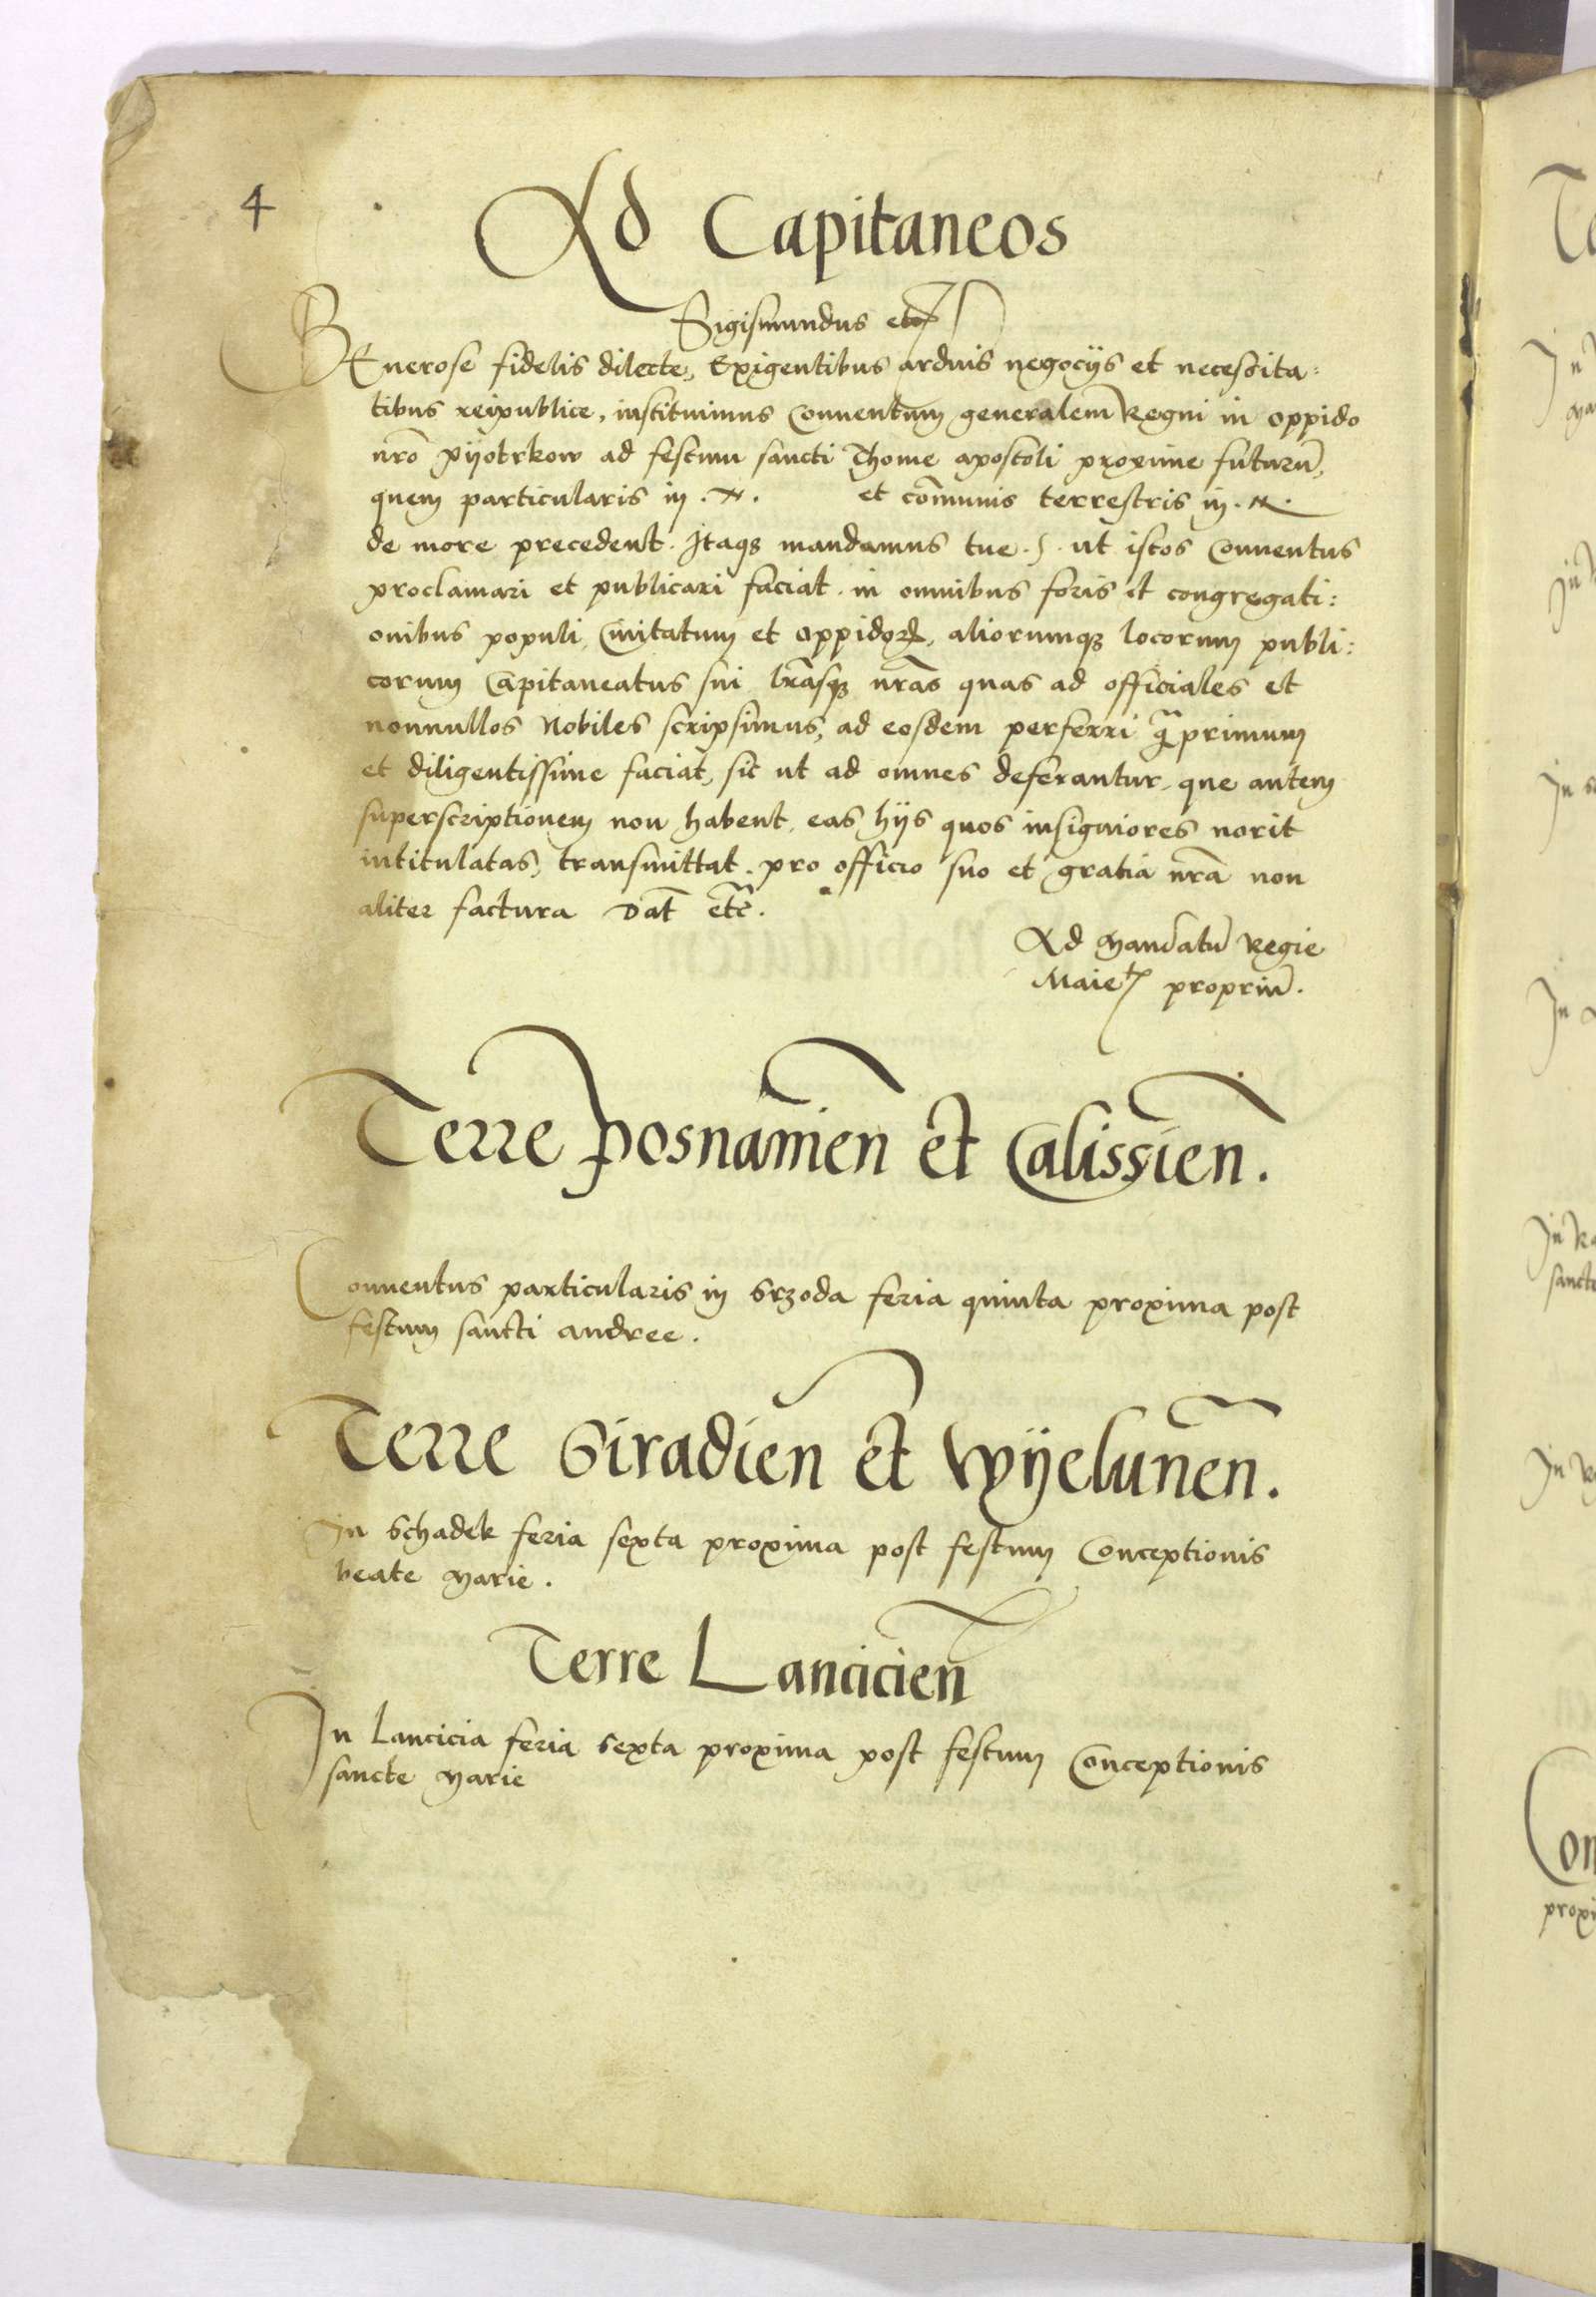 4
Ad Capitaneos
Sigismundus etc
GEnerose fidelis dilecte, Exigentibus arduis negocijs et necessita:
tibus reipublice, instituimus Conuentum generalem Regni in oppido
nr̃o Pijotrkow ad festum sancti Thome apostoli proxime futurũ,
quem particularis in .N. et cõmunis terrestris in .N.
de more precedent. Itaqꝫ mandamus tue .S. ut istos Conuentus
proclamari et publicari faciat. in omnibus foris et congregati:
onibus populi, Ciuitatum et oppidoꝝ, aliorumqꝫ locorum publi:
corum Capitaneatus sui lr̃asqꝫ nr̃as quas ad officiales et
nonnullos Nobiles scripsimus, ad eosdem perferri q̃primum
et diligentissime faciat, sic ut ad omnes deferantur, que autem
superscriptionem non habent, eas hijs quos insigniores norit
intitulatas, transmittat. pro officio suo et gratia nr̃a non
aliter factura Dat̃ etc̃.
Ad Mandatũ Regie
Maietꝭ propriũ.
Terre Posnanien̄ et Calissien̄.
Conuentus particularis in Srzoda feria quinta proxima post
festum sancti Andree.
Terre Siradien̄ et Wyelunen̄.
In Schadek feria sexta proxima post festum Conceptionis
beate Marie.
Terre Lancicien̄
In Lancicia feria sexta proxima post festum Conceptionis
sancte Marie